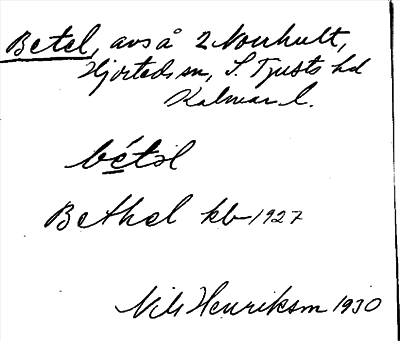 Betel, avs å 2 Norrhult,
Hjorteds sn, S. Tjusts hd
Kalmar l.
bétəl
Bethel kb 1927
Nils Henriksson 1930